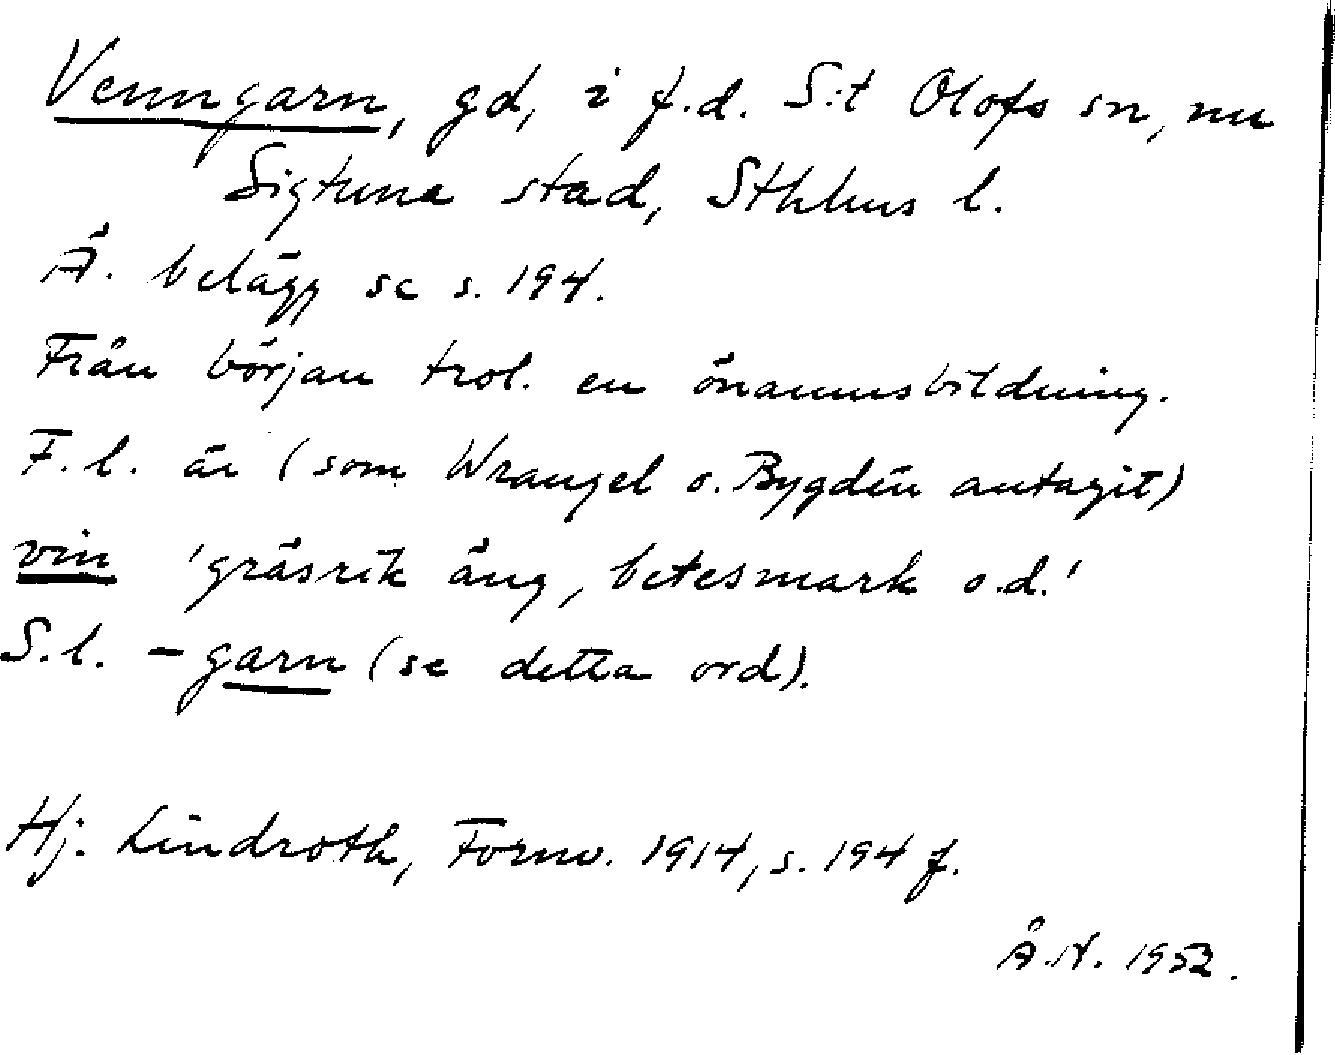 Venngarn, gd, i f.d. S:t Olofs sn, nu
Sigtuna stad, Sthlms l.
Ä. belägg se s. 194.
Från början trol. en önamnsbildning.
F.l. är (som Wrangel o. Bygdén antagit)
vin 'gräsrik äng, betesmark o.d.'
S.l. -garn (se detta ord).
Hj. Lindroth, Fornv. 1914, s. 194 f.
Å.N. 1952.